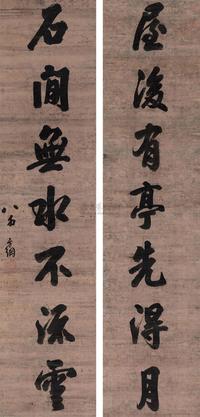 屋後有亭先得月
石間無水不流雲